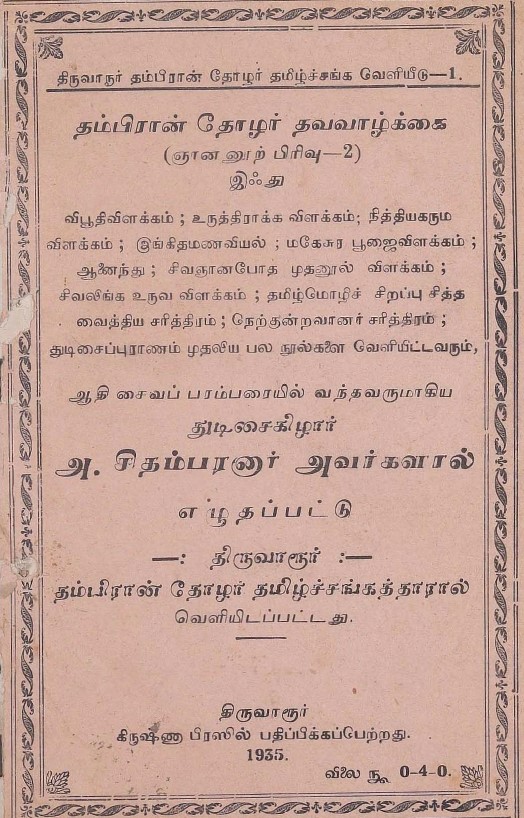 திருவாரூர் தம்பிரான் தோழர் தமிழ்ச்சங்க வெளியீடு—1.
தம்பிரான் தோழர் தவவாழ்க்கை
(ஞானனூற் பிரிவு—2)
இஃது
விபூதிவிளக்கம் ; உருத்திராக்க விளக்கம்; நித்தியகரும
விளக்கம் ; இங்கிதமணவியல் ; மகேசுர பூஜைவிளக்கம் ;
ஆணைந்து ; சிவஞானபோத முதனூல் விளக்கம் ;
சிவலிங்க உருவ விளக்கம் ; தமிழ்மொழிச் சிறப்பு சித்த
வைத்திய சரித்திரம் ; நேற்குன்றவாணர் சரித்திரம் ;
துடிசைப்புராணம் முதலிய பல நூல்களை வெளியிட்டவரும்,
ஆதி சைவப் பரம்பரையில் வந்தவருமாகிய
துடிசைகிழார்
அ. சிதம்பரனார் அவர்களால்
எழுதப்பட்டு
—: திருவாரூர் :—
தம்பிரான் தோழர் தமிழ்ச்சங்கத்தாரால்
வெளியிடப்பட்டது.
திருவாரூர்
கிருஷ்ணா பிரஸில் பதிப்பிக்கப்பேற்றது.
1935.
விலை ரூ 0-4-0.